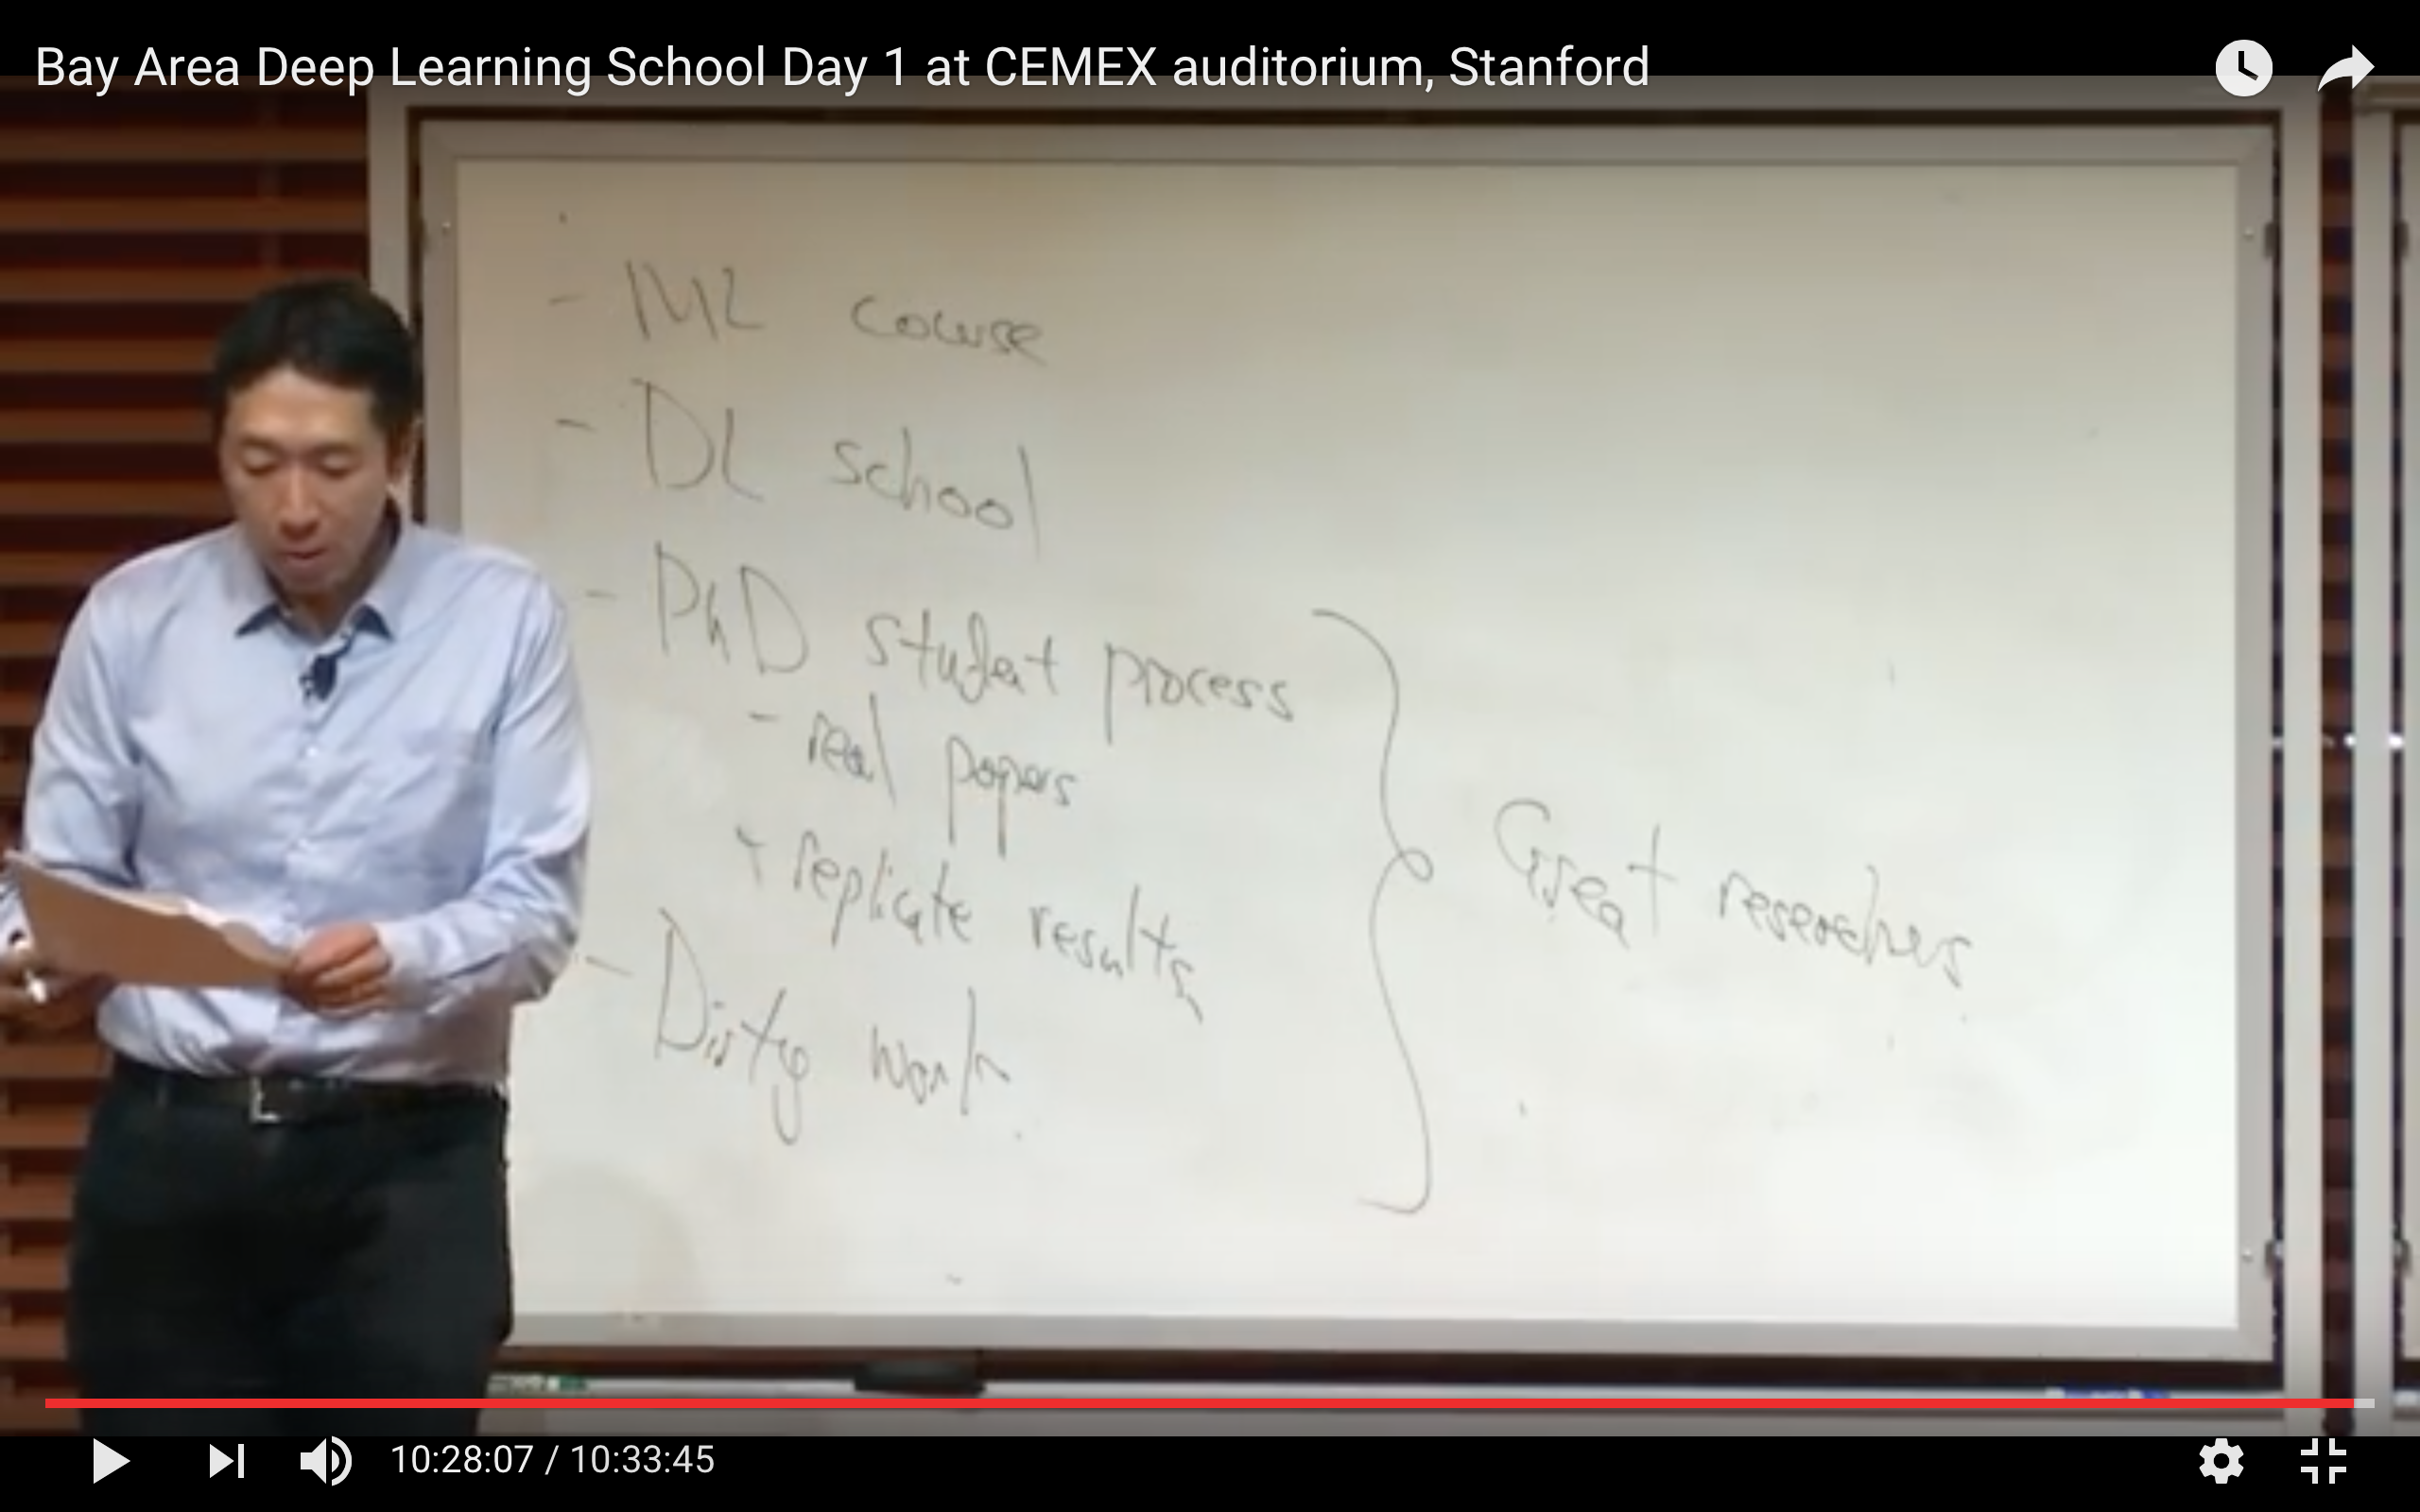 Bay Area Deep Learning School Day 1 at CEMEX auditorium, Stanford
- ML course
- DL school
- PhD student process
- read papers
+ replicate results
- Dirty work
Great researchers
10:28:07 / 10:33:45